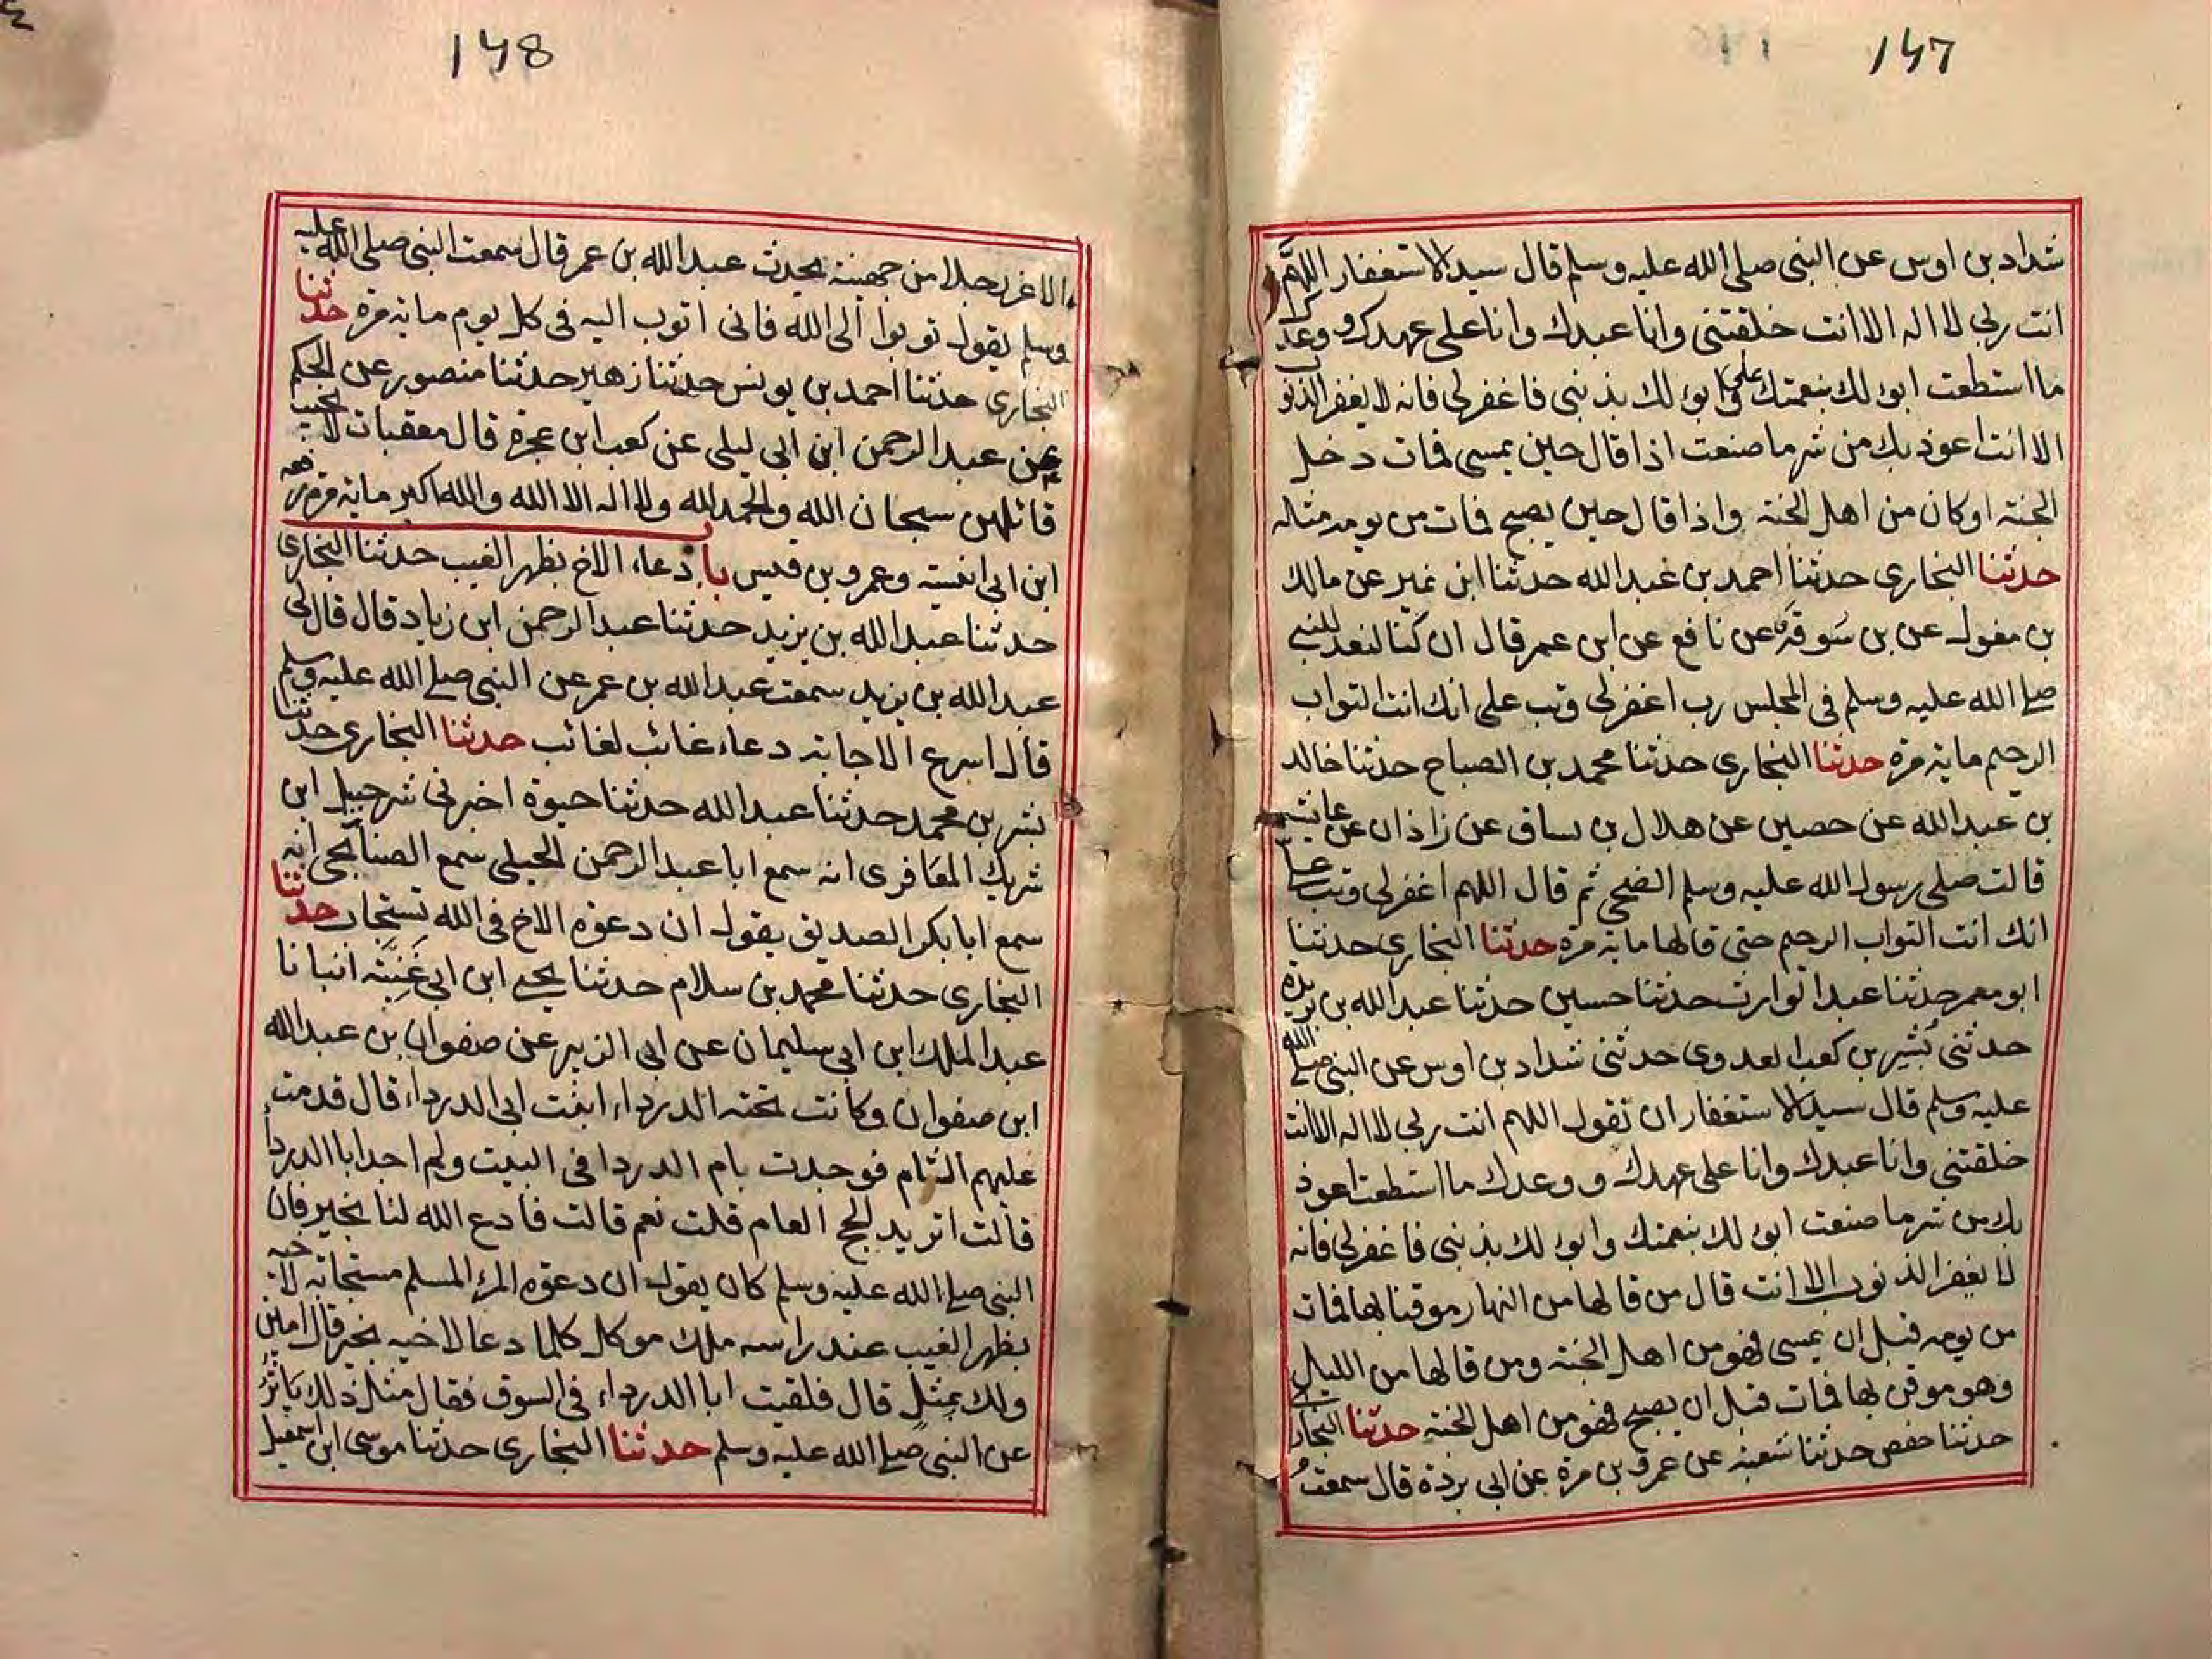 147
شداد بن اوس عن النبى صلى الله عليه وسلم قال سيد الاستغفار اللهم
انت ربى لا اله الا انت خلقتنى وانا عبدك وانا على عهدك ووعدك
ما استطعت ابوء لك بنعمتك على وابوء لك بذنبى فاغفرلى فانه لا يغفر الذنوب
الا انت اعوذ بك من شر ما صنعت اذا قال حين يمسى فمات دخل
الجنة او كان من اهل الجنة واذا قال حين يصبح فمات من يومه مثاله
حدثنا البخارى حدثنا احمد بن عبد الله حدثنا ابن نمير عن مالك
بن مغول عن بن سوقة عن نافع عن ابن عمر قال ان كنا لنعد للنبى
صلى الله عليه وسلم فى المجلس رب اغفرلى وتب على انك انت التواب
الرحيم ماية مرة حدثنا البخارى حدثنا محمد بن الصباح حدثنا خالد
بن عبد الله عن حصين عن هلال بن يساف عن زاذان عن عائشة
قالت صلى رسول الله عليه وسلم الضحى ثم قال اللهم اغفرلى وتب على
انك انت التواب الرحيم حتى قالها ماية مرة حدثنا البخارى حدثنا
ابو معمر حدثنا عبد الوارث حدثنا حسين حدثنا عبد الله بن بريدة
حدثنى بُشير بن كعب العدوى حدثنى شداد بن اوس عن النبى صلى الله
عليه وسلم قال سيد الاستغفار ان تقول اللهم انت ربى لا اله الا انت
خلقتنى وانا عبدك وانا على عهدك ووعدك ما استطعت اعوذ
بك من شر ما صنعت ابوء لك بنعمتك وابوء لك بذنبى فاغفرلى فانه
لا يغفر الذنوب الا انت قال من قالها من النهار موقنا بها فمات
من يومه قبل ان يمسى فهو من اهل الجنة ومن قالها من الليل
وهو موقن بها فمات قبل ان يصبح فهو من اهل الجنة حدثنا البخارى
حدثنا حفص حدثنا شعبة عن عمرو بن مرة عن ابى بردة قال سمعت
148
الاغر رجلا من جهينة يحدث عبد الله بن عمر قال سمعت النبى صلى الله عليه
وسلم يقول توبوا الى الله فانى اتوب اليه فى كل يوم ماية مرة حدثنا
البخارى حدثنا احمد بن يونس حدثنا زهير حدثنا منصور عن الحكم
عن عبد الرحمن ابن ابى ليلى عن كعب ابن عجرة قال معقبات لا يخيب
قائلهن سبحان الله والحمد لله ولا اله الا الله والله اكبر ماية مرة رفعه
ابن ابى انيسة وعمرو بن قيس باب دعاء الاخ بظهر الغيب حدثنا البخارى
حدثنا عبد الله بن يزيد حدثنا عبد الرحمن ابن زياد قال قال لى
عبد الله بن يزيد سمعت عبد الله بن عمر عن النبى صلى الله عليه وسلم
قال اسرع الاجابة دعاء غائب لغائب حدثنا البخارى حدثنا
بشر بن محمد حدثنا عبد الله حدثنا حيوة اخبرنى شرحبيل ابن
شريك المعافرى انه سمع ابا عبد الرحمن الحبلى سمع الصنابحى انه
سمع ابا بكر الصديق يقول ان دعوة الاخ فى الله تستجاب حدثنا
البخارى حدثنا محمد بن سلام حدثنا يحيى ابن ابى غَنِيَّة انبانا
عبد الملك ابن ابى سليمان عن ابى الزبير عن صفوان بن عبد الله
ابن صفوان وكانت تحته الدرداء ابنت ابى الدرداء قال قدمت
عليهم الشام فوجدت بام الدرداء فى البيت ولم اجد ابا الدرداء
قالت اتريد الحج العام قلت نعم قالت فادع الله لنا بخير فان
النبى صلى الله عليه وسلم كان يقول ان دعوة المرء المسلم مستجابة لاخيه
بظهر الغيب عند راسه ملك موكل كلما دعا لاخيه بخير قال امين
ولك بمثل قال فلقيت ابا الدرداء فى السوق فقال مثل ذلك يَاثُرُ
عن النبى صلى الله عليه وسلم حدثنا البخارى حدثنا موسى ابن اسمعيل